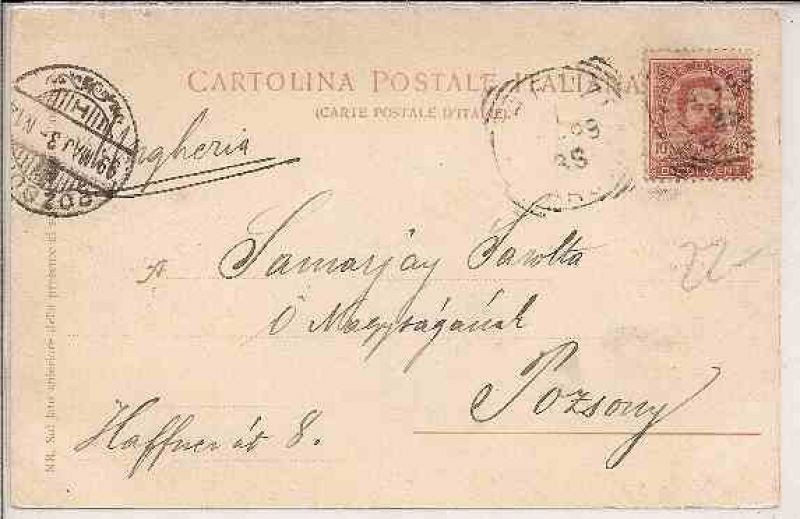 CARTOLINA POSTALE ITALIANA
(CARTE POSTALE D'ITALIE).
Ungheria
99 MAJ 3
POZSO
99
10 10
Samarjay Sarolta
Ő Nagyságának
Pozsony
Haffner út 8.
22
NB. Sul lato anteriore della presente si s